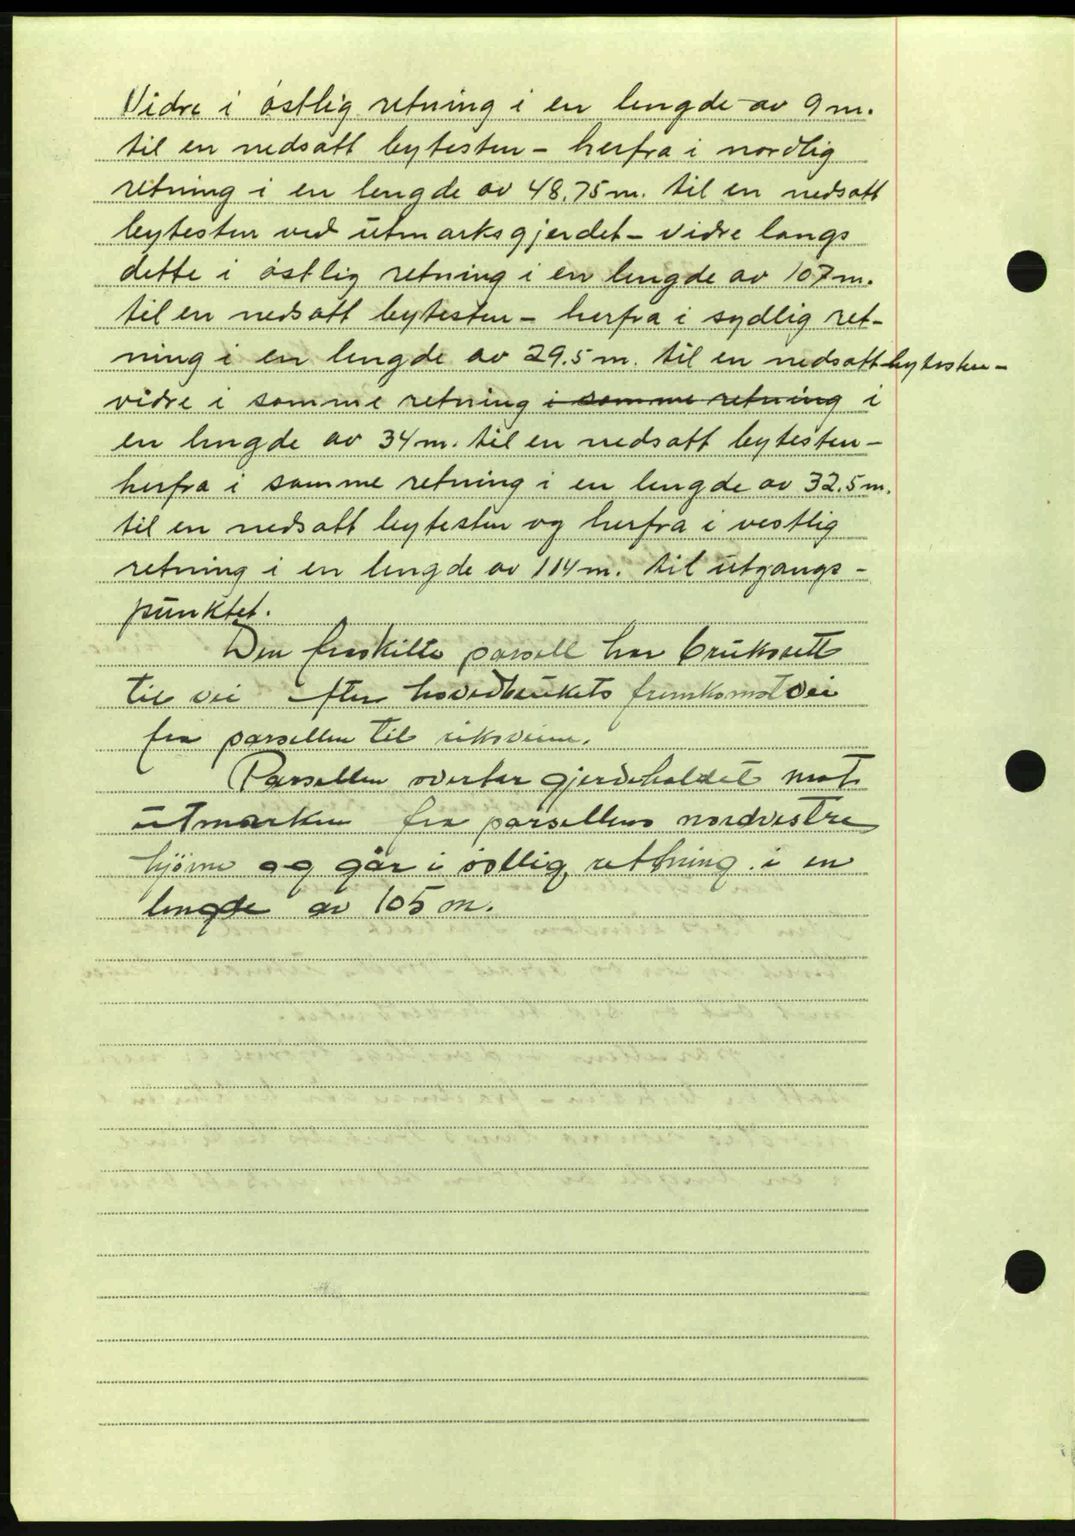 Vidre i östlig retning i en lengde av 9 m.
til en nedsatt bytesten - herfra i nordlig
retning i en lengde av 48,75 m. til en nedsatt
bytesten ved utmarksgjerdet - vidre langs
dette i östlig retning i en lengde av 107 m.
til en nedsatt bytesten - herfra i sydlig ret-
ning i en lengde av 29.5 m. til en nedsatt bytesten -
vidre i samme retning i samme retning i
en lengde av 34 m. til en nedsatt bytesten -
herfra i samme retning i en lengde av 32.5 m.
til en nedsatt bytesten og herfra i vestlig
retning i en lengde av 114 m. til utgangs-
punktet.
Den fraskilte parsell har bruksrett
til vei efter hovedbrukets fremkomstvei
fra parsellen til riksveien.
Parsellen overtar gjerdeholdet mot
utmarken fra parsellens nordvestre
hjörne og går i östlig retning i en
lengde av 105 m.